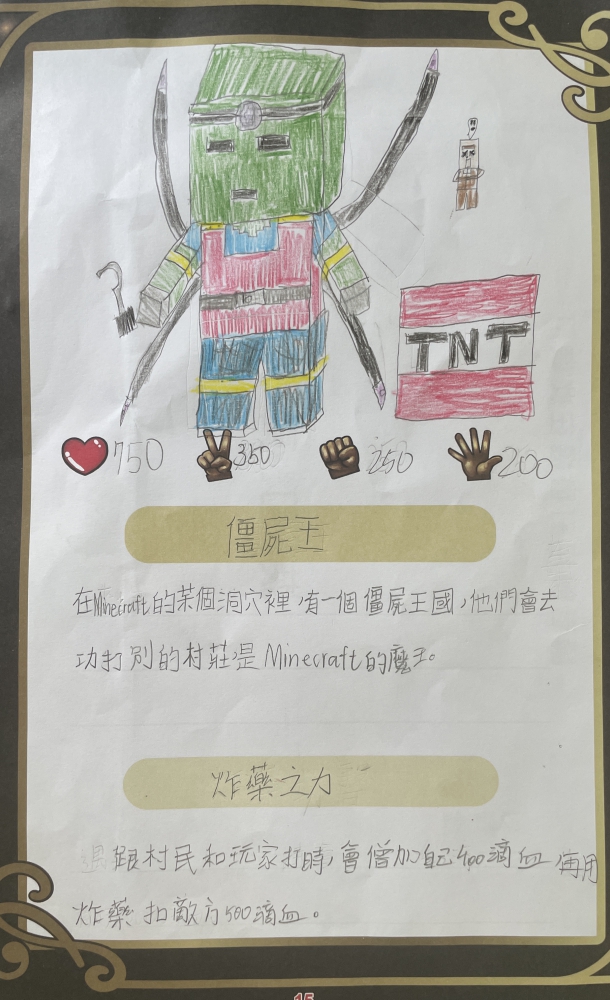 TNT
750 350 250 200
僵屍王
在Minecraft的某個洞穴裡,有一個僵屍王國,他們會去
功打別的村莊,是Minecraft的魔王。
炸藥之力
跟村民和玩家打時,會僧加自己400滴血,再用
炸藥扣敵方500滴血。
15